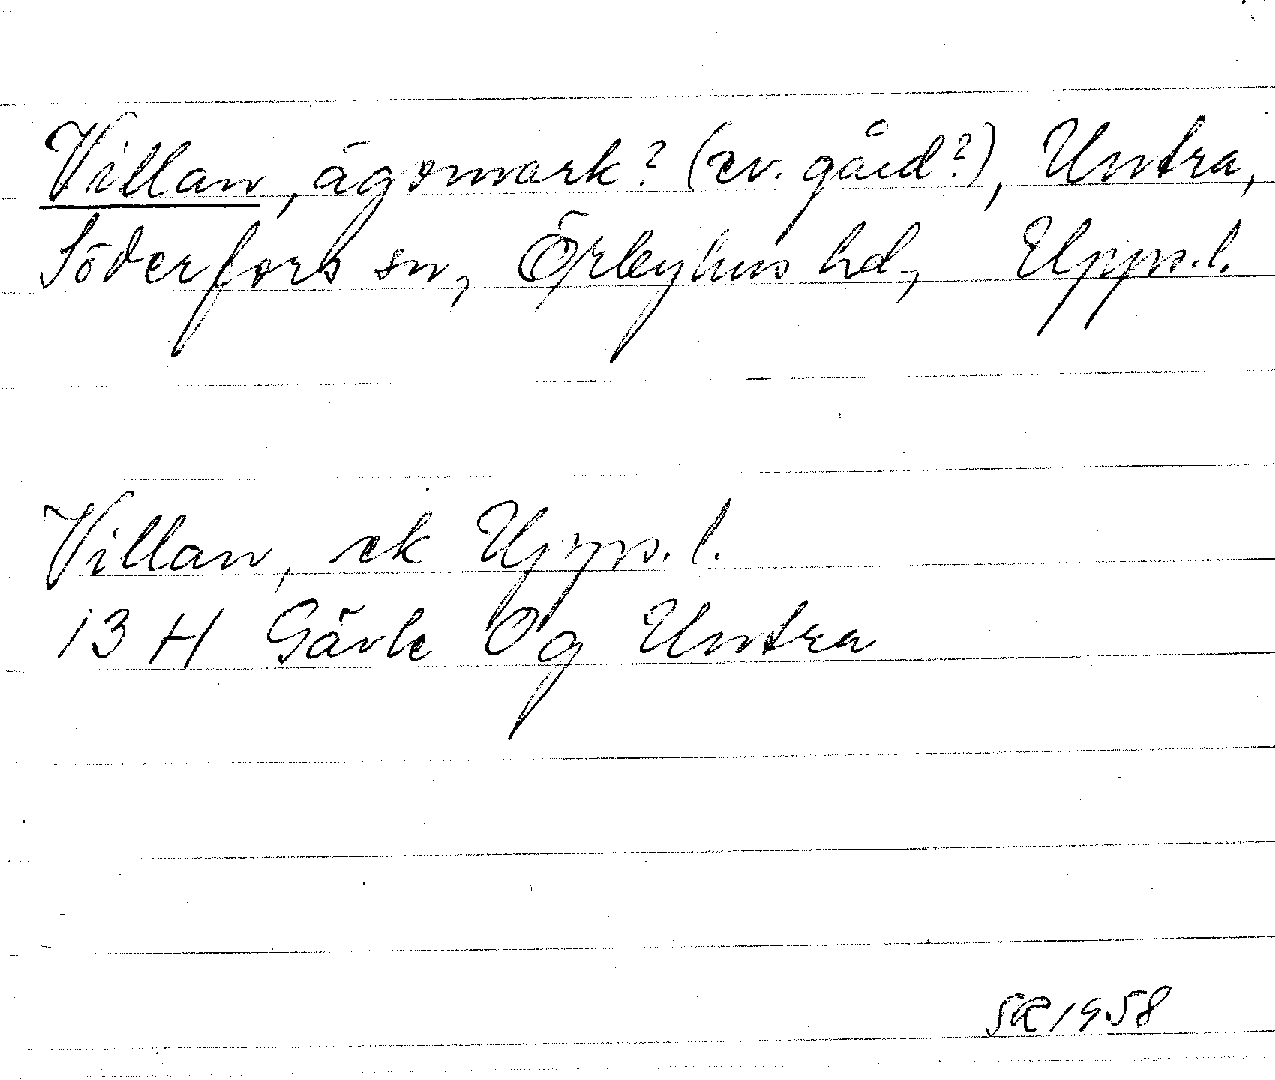 Villan, ägomark? (ev. gård?), Untra,
Söderfors sn, Örbyhus hd, Upps.l.
Villan, ek Upps.l.
13 H Gävle Og Untra
SR 1958